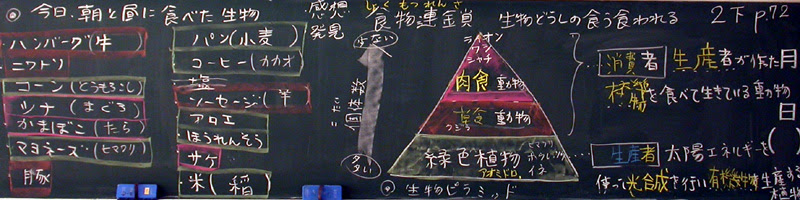 ◎ 今日、朝と昼に食べた生物
ハンバーグ(牛)
ニワトリ
コーン(とうもろこし)
ツナ(まぐろ)
かまぼこ(たら)
マヨネーズ(ヒマワリ)
豚
パン(小麦)
コーヒー(カカオ)
塩
ソーセージ(羊
アロエ
ほうれんそう
サケ
米(稲)
感想
発見
しょくもつれんさ
食物連鎖 生物どうしの食う食われる
2下 p.72
少ない
個体数
多い
ライオン
ワシ
シャチ
肉食動物
草食動物
クジラ
緑色植物
アオミドロ
ヒマワリ
ホウレンソウ
イネ
◎ 生物ピラミッド
消費者 生産者が作った
有機物を食べて生きている動物
生産者 太陽エネルギーを
使って光合成を行い有機物を生産する
植物
月
日
(